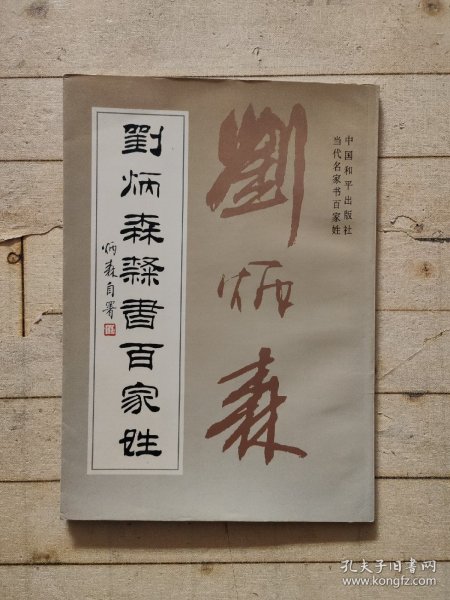 中国和平出版社
当代名家书百家姓
劉炳森
劉炳森隸書百家姓
炳森自署
孔夫子旧书网
www.kongfz.com